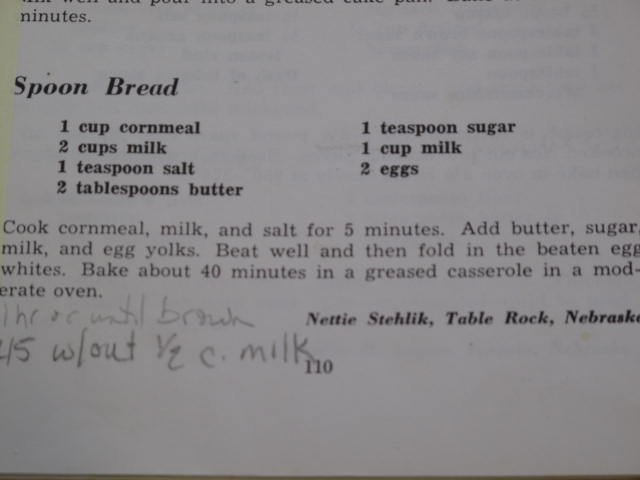 minutes.
Spoon Bread
1 cup cornmeal
2 cups milk
1 teaspoon salt
2 tablespoons butter
1 teaspoon sugar
1 cup milk
2 eggs
Cook cornmeal, milk, and salt for 5 minutes. Add butter, sugar,
milk, and egg yolks. Beat well and then fold in the beaten egg
whites. Bake about 40 minutes in a greased casserole in a mod-
erate oven.
1 hr or until brown
Nettie Stehlik, Table Rock, Nebraska
w/out 1/2 c. milk
110